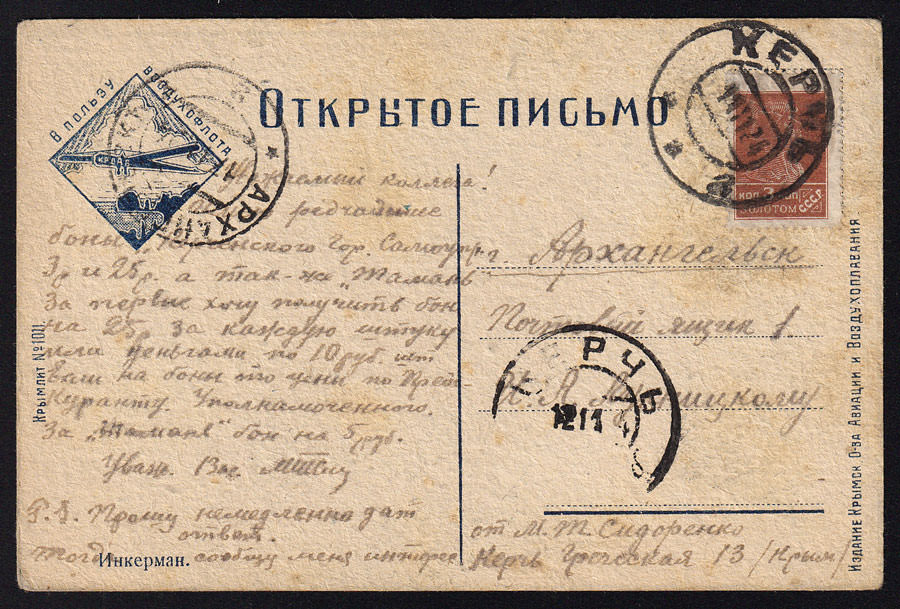 В ПОЛЬЗУ ВОЗДУХОФЛОТА
ОТКРЫТОЕ ПИСЬМО
КЕРЧЬ
КОП 3 КОП
ЗОЛОТОМ
СССР
АРХАН
коллега!
боны Гор. Самоупр.
3р и 25р. а так-же "Тамань"
За первые хочу получить бон
на 25р за каждую штуку
или деньгами по 10 руб. или
вам на боны по цене по Прейс-
куранту Уполномоченного.
За "Тамань" бон на 5 руб.
Уваж. Вас
P.S. Прошу немедленно дат
ответ.
тогда сообщу
Инкерман.
КРЫМЛИТ №1011
г. Архангельск
Почтовый ящик 1.
КЕРЧЬ
12 11
от М. Т. Сидоренко
Керчь Греческая 13 /Крым/
ИЗДАНИЕ КРЫМСК. О-ВА АВИАЦИИ И ВОЗДУХОПЛАВАНИЯ